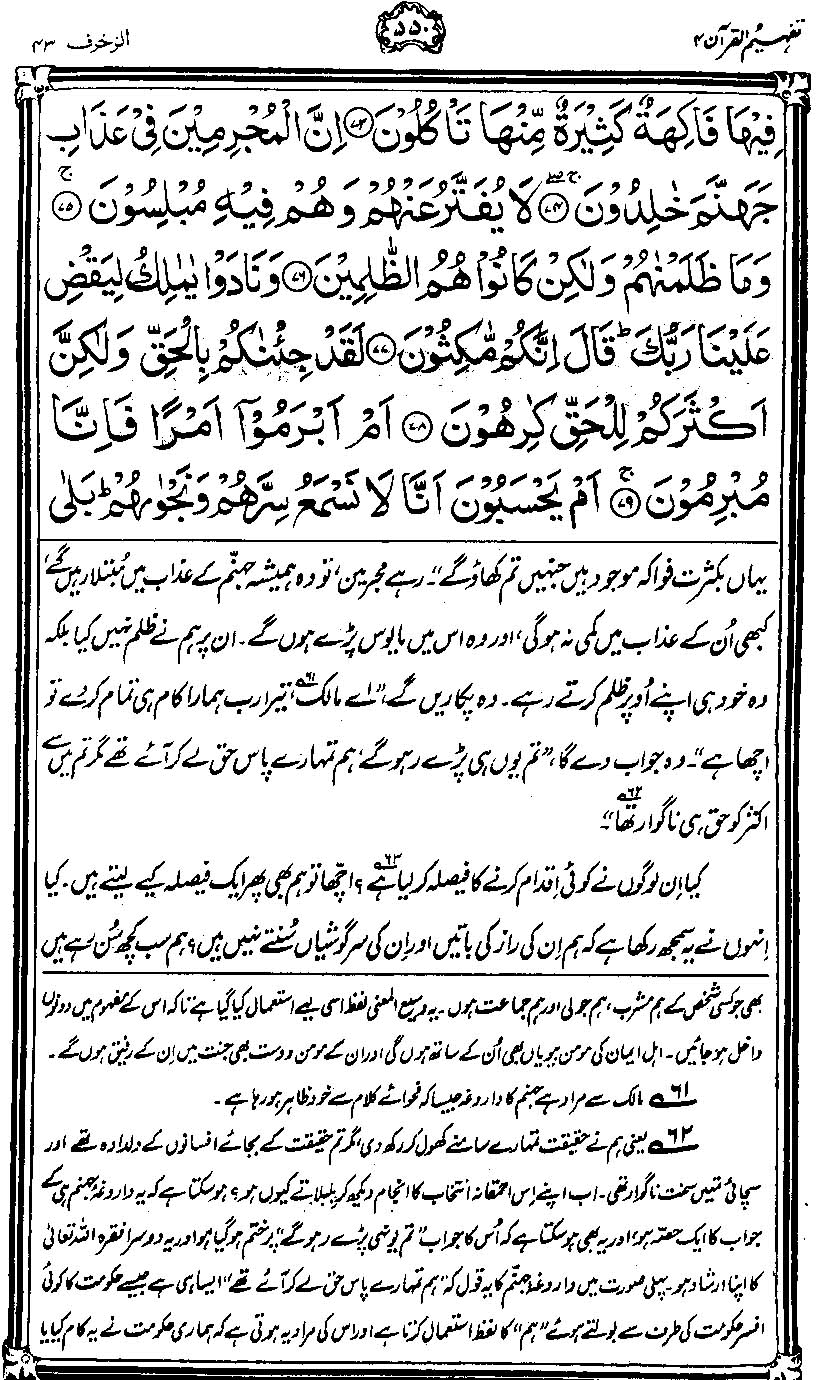 تفہیم القرآن ۴
۵۵۰
الزخرف ۴۳
فِيْهَا فَاكِهَةٌ كَثِيْرَةٌ مِّنْهَا تَاْكُلُوْنَ ﴿۷۳﴾ اِنَّ الْمُجْرِمِيْنَ فِيْ عَذَابِ
جَهَنَّمَ خٰلِدُوْنَ ﴿۷۴﴾ لَا يُفَتَّرُ عَنْهُمْ وَهُمْ فِيْهِ مُبْلِسُوْنَ ﴿۷۵﴾
وَمَا ظَلَمْنٰهُمْ وَلٰكِنْ كَانُوْا هُمُ الظّٰلِمِيْنَ ﴿۷۶﴾ وَنَادَوْا يٰمٰلِكُ لِيَقْضِ
عَلَيْنَا رَبُّكَ ؕ قَالَ اِنَّكُمْ مّٰكِثُوْنَ ﴿۷۷﴾ لَقَدْ جِئْنٰكُمْ بِالْحَقِّ وَلٰكِنَّ
اَكْثَرَكُمْ لِلْحَقِّ كٰرِهُوْنَ ﴿۷۸﴾ اَمْ اَبْرَمُوْٓا اَمْرًا فَاِنَّا
مُبْرِمُوْنَ ﴿۷۹﴾ اَمْ يَحْسَبُوْنَ اَنَّا لَا نَسْمَعُ سِرَّهُمْ وَنَجْوٰىهُمْ ؕ بَلٰى
یہاں بکثرت فواکہ موجود ہیں جنہیں تم کھاؤ گے“۔ رہے مجرمین، تو وہ ہمیشہ جہنّم کے عذاب میں مُبتلا رہیں گے،
کبھی اُن کے عذاب میں کمی نہ ہوگی، اور وہ اس میں مایوس پڑے ہوں گے۔ ان پر ہم نے ظلم نہیں کیا بلکہ
وہ خود ہی اپنے اُوپر ظلم کرتے رہے۔ وہ پکاریں گے، ”اے مالک،۶۱ تیرا رب ہمارا کام ہی تمام کر دے تو
اچھا ہے“۔ وہ جواب دے گا، ”تم یوں ہی پڑے رہو گے، ہم تمہارے پاس حق لے کر آئے تھے مگر تم میں سے
اکثر کو حق ہی ناگوار تھا“۶۲۔
کیا اِن لوگوں نے کوئی اِقدام کرنے کا فیصلہ کر لیا ہے۶۳؟ اچھّا تو ہم بھی پھر ایک فیصلہ کیے لیتے ہیں۔ کیا
اِنہوں نے یہ سمجھ رکھا ہے کہ ہم اِن کی راز کی باتیں اور اِن کی سرگوشیاں سُنتے نہیں ہیں؟ ہم سب کچھ سُن رہے ہیں
بھی جو کسی شخص کے ہم مشرب، ہم جولی اور ہم جماعت ہوں۔ یہ وسیع المعنی لفظ اسی لیے استعمال کیا گیا ہے تاکہ اس کے مفہوم میں دونوں
داخل ہو جائیں۔ اہل ایمان کی مومن بیویاں بھی اُن کے ساتھ ہوں گی اور ان کے مومن دوست بھی جنت میں اِن کے رفیق ہوں گے۔
۶۱ مالک سے مراد ہے جہنم کا داروغہ جیسا کہ فحوائے کلام سے خود ظاہر ہو رہا ہے۔
۶۲ یعنی ہم نے حقیقت تمہارے سامنے کھول کر رکھ دی، مگر تم حقیقت کے بجائے افسانوں کے دلدادہ تھے اور
سچائی تمہیں سخت ناگوار تھی۔ اب اپنے اِس احمقانہ انتخاب کا انجام دیکھ کر بلبلاتے کیوں ہو؟ ہو سکتا ہے کہ یہ داروغۂ جہنم ہی کے
جواب کا ایک حصّہ ہو، اور یہ بھی ہو سکتا ہے کہ اُس کا جواب ”تم یونہی پڑے رہو گے“ پر ختم ہو گیا ہو اور یہ دوسرا فقرہ اللہ تعالیٰ
کا اپنا ارشاد ہو۔ پہلی صورت میں داروغۂ جہنّم کا یہ قول کہ ”ہم تمہارے پاس حق لے کر آئے تھے“ ایسا ہی ہے جیسے حکومت کا کوئی
افسر حکومت کی طرف سے بولتے ہوئے ”ہم“ کا لفظ استعمال کرتا ہے اور اس کی مراد یہ ہوتی ہے کہ ہماری حکومت نے یہ کام کیا یا